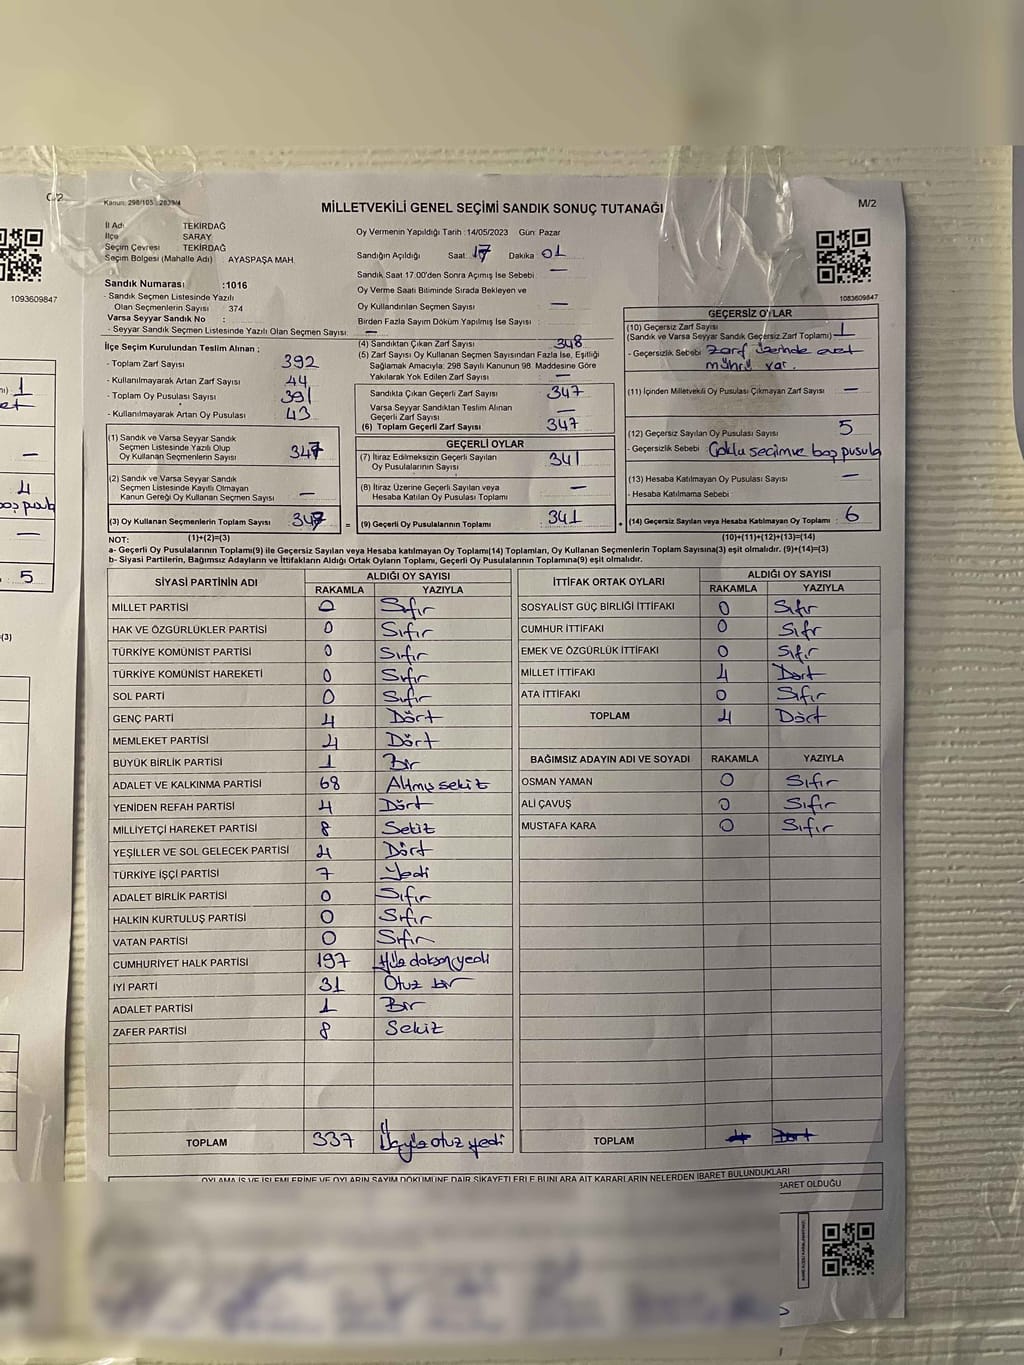 C/2
Kanun: 298/105 :2839/4
MİLLETVEKİLİ GENEL SEÇİMİ SANDIK SONUÇ TUTANAĞI
M/2
İl Adı : TEKİRDAĞ
İlçe : SARAY
Seçim Çevresi : TEKİRDAĞ
Seçim Bölgesi (Mahalle Adı) : AYASPAŞA MAH.
Oy Vermenin Yapıldığı Tarih :14/05/2023 Gün: Pazar
Sandığın Açıldığı Saat: 17 Dakika 01
Sandık Saat 17:00'den Sonra Açımış İse Sebebi : —
Oy Verme Saati Bitiminde Sırada Bekleyen ve
Oy Kullandırılan Seçmen Sayısı : —
Birden Fazla Sayım Döküm Yapılmış İse Sayısı :
1093609847
1083609847
Sandık Numarası :1016
- Sandık Seçmen Listesinde Yazılı
Olan Seçmenlerin Sayısı : 374
Varsa Seyyar Sandık No :
- Seyyar Sandık Seçmen Listesinde Yazılı Olan Seçmen Sayısı: —
İlçe Seçim Kurulundan Teslim Alınan ;
- Toplam Zarf Sayısı : 392
- Kullanılmayarak Artan Zarf Sayısı : 44
- Toplam Oy Pusulası Sayısı : 391
- Kullanılmayarak Artan Oy Pusulası : 43
(1) Sandık ve Varsa Seyyar Sandık
Seçmen Listesinde Yazılı Olup
Oy Kullanan Seçmenlerin Sayısı : 347
(2) Sandık ve Varsa Seyyar Sandık
Seçmen Listesinde Kayıtlı Olmayan
Kanun Gereği Oy Kullanan Seçmen Sayısı : —
(3) Oy Kullanan Seçmenlerin Toplam Sayısı : 347
(4) Sandıktan Çıkan Zarf Sayısı : 348
(5) Zarf Sayısı Oy Kullanan Seçmen Sayısından Fazla İse, Eşitliği
Sağlamak Amacıyla: 298 Sayılı Kanunun 98. Maddesine Göre
Yakılarak Yok Edilen Zarf Sayısı : —
Sandıkta Çıkan Geçerli Zarf Sayısı : 347
Varsa Seyyar Sandıktan Teslim Alınan
Geçerli Zarf Sayısı : —
(6) Toplam Geçerli Zarf Sayısı : 347
GEÇERLİ OYLAR
(7) İtiraz Edilmeksizin Geçerli Sayılan
Oy Pusulalarının Sayısı : 341
(8) İtiraz Üzerine Geçerli Sayılan veya
Hesaba Katılan Oy Pusulası Toplamı : —
= (9) Geçerli Oy Pusulalarının Toplamı : 341 +
GEÇERSİZ OYLAR
(10) Geçersiz Zarf Sayısı
(Sandık ve Varsa Seyyar Sandık Geçersiz Zarf Toplamı) : 1
- Geçersizlik Sebebi : Zarf üzerinde evet
mührü var.
(11) İçinden Milletvekili Oy Pusulası Çıkmayan Zarf Sayısı : —
(12) Geçersiz Sayılan Oy Pusulası Sayısı : 5
- Geçersizlik Sebebi : Çoklu seçim ve boş pusula
(13) Hesaba Katılmayan Oy Pusulası Sayısı : —
- Hesaba Katılmama Sebebi :
(14) Geçersiz Sayılan veya Hesaba Katılmayan Oy Toplamı : 6
NOT: (1)+(2)=(3) (10)+(11)+(12)+(13)=(14)
a- Geçerli Oy Pusulalarının Toplamı(9) ile Geçersiz Sayılan veya Hesaba katılmayan Oy Toplamı(14) Toplamları, Oy Kullanan Seçmenlerin Toplam Sayısına(3) eşit olmalıdır. (9)+(14)=(3)
b- Siyasi Partilerin, Bağımsız Adayların ve İttifakların Aldığı Ortak Oyların Toplamı, Geçerli Oy Pusulalarının Toplamına(9) eşit olmalıdır.
SİYASİ PARTİNİN ADI ALDIĞI OY SAYISI
RAKAMLA YAZIYLA
MİLLET PARTİSİ 0 Sıfır
HAK VE ÖZGÜRLÜKLER PARTİSİ 0 Sıfır
TÜRKİYE KOMÜNİST PARTİSİ 0 Sıfır
TÜRKİYE KOMÜNİST HAREKETİ 0 Sıfır
SOL PARTİ 0 Sıfır
GENÇ PARTİ 4 Dört
MEMLEKET PARTİSİ 4 Dört
BÜYÜK BİRLİK PARTİSİ 1 Bir
ADALET VE KALKINMA PARTİSİ 68 Altmış sekiz
YENİDEN REFAH PARTİSİ 4 Dört
MİLLİYETÇİ HAREKET PARTİSİ 8 Sekiz
YEŞİLLER VE SOL GELECEK PARTİSİ 4 Dört
TÜRKİYE İŞÇİ PARTİSİ 7 Yedi
ADALET BİRLİK PARTİSİ 0 Sıfır
HALKIN KURTULUŞ PARTİSİ 0 Sıfır
VATAN PARTİSİ 0 Sıfır
CUMHURİYET HALK PARTİSİ 197 Yüz doksan yedi
İYİ PARTİ 31 Otuz bir
ADALET PARTİSİ 1 Bir
ZAFER PARTİSİ 8 Sekiz
TOPLAM 337 Üçyüz otuz yedi
İTTİFAK ORTAK OYLARI ALDIĞI OY SAYISI
RAKAMLA YAZIYLA
SOSYALİST GÜÇ BİRLİĞİ İTTİFAKI 0 Sıfır
CUMHUR İTTİFAKI 0 Sıfr
EMEK VE ÖZGÜRLÜK İTTİFAKI 0 Sıfır
MİLLET İTTİFAKI 4 Dört
ATA İTTİFAKI 0 Sıfır
TOPLAM 4 Dört
BAĞIMSIZ ADAYIN ADI VE SOYADI RAKAMLA YAZIYLA
OSMAN YAMAN 0 Sıfır
ALİ ÇAVUŞ 0 Sıfır
MUSTAFA KARA 0 Sıfır
TOPLAM
OYLAMA İŞ VE İŞLEMLERİNE VE OYLARIN SAYIM DÖKÜMÜNE DAİR ŞİKAYETLERLE BUNLARA AİT KARARLARIN NELERDEN İBARET BULUNDUKLARI
İBARET OLDUĞU